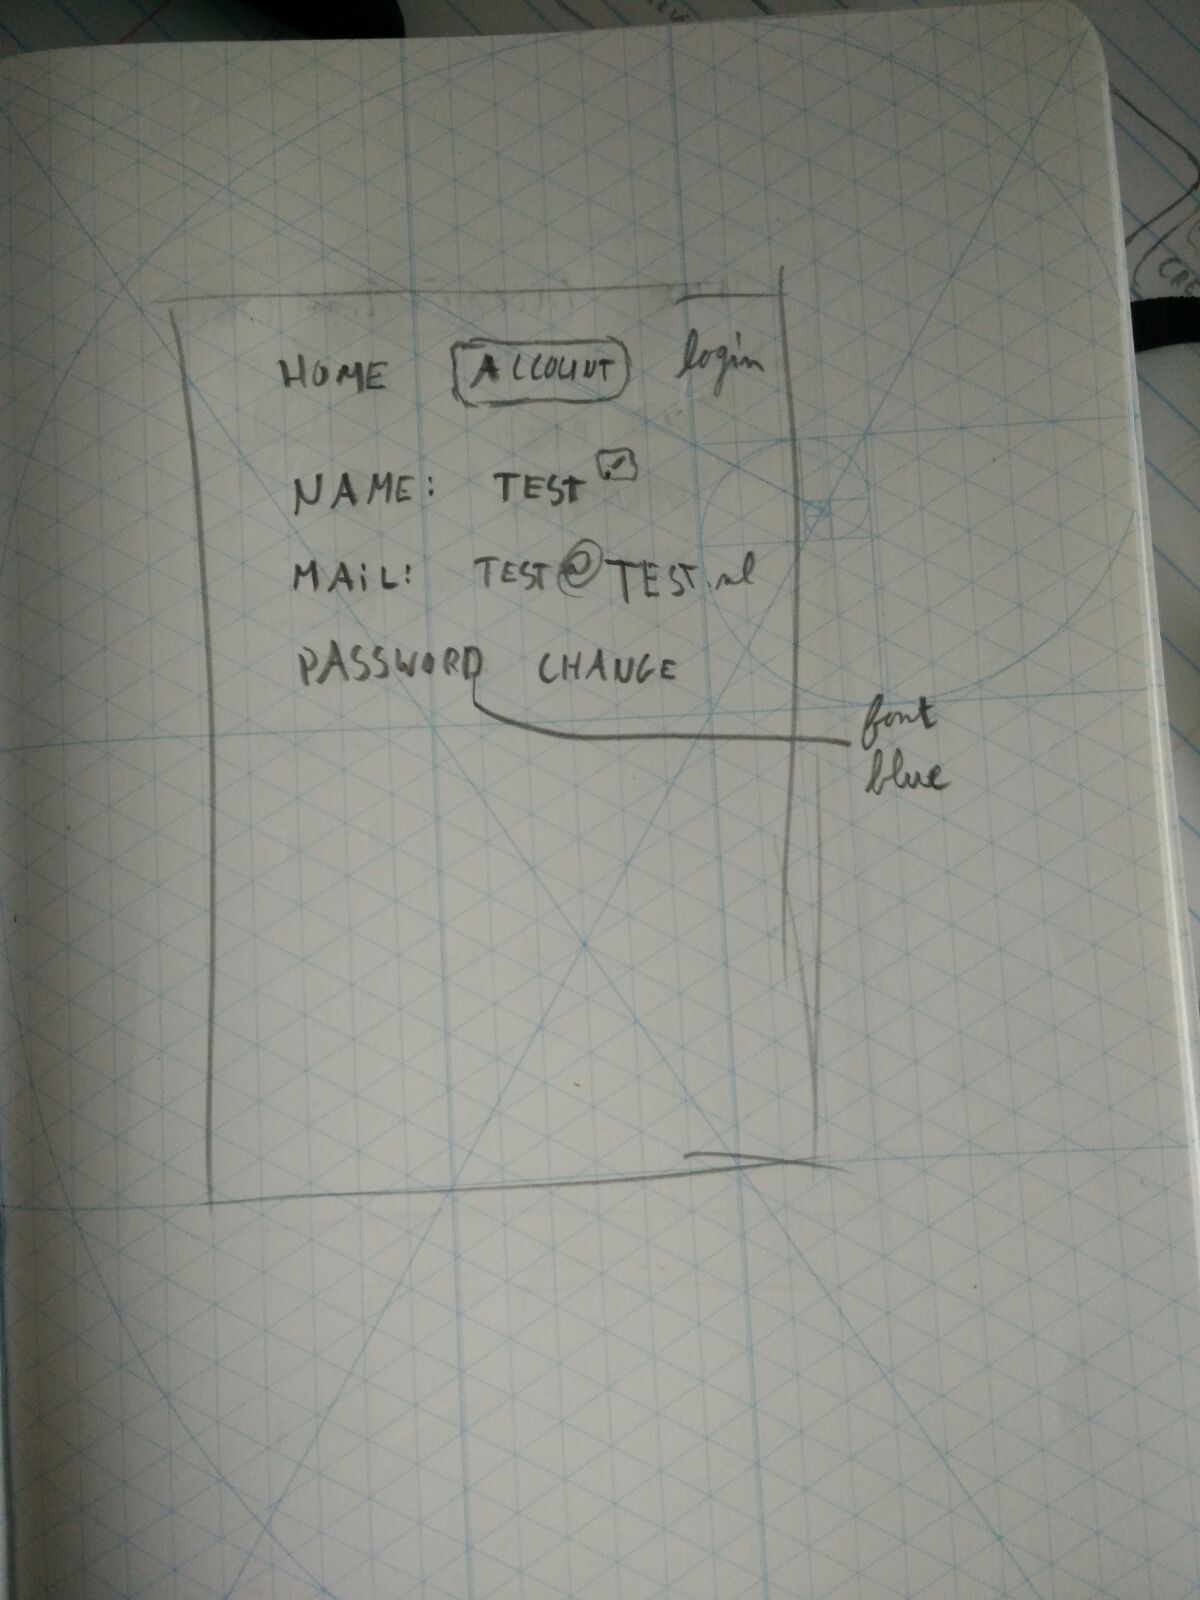 HOME ACCOUNT login
NAME: TEST
MAiL: TEST@TEST.nl
PASSWORD CHANGE
font
blue